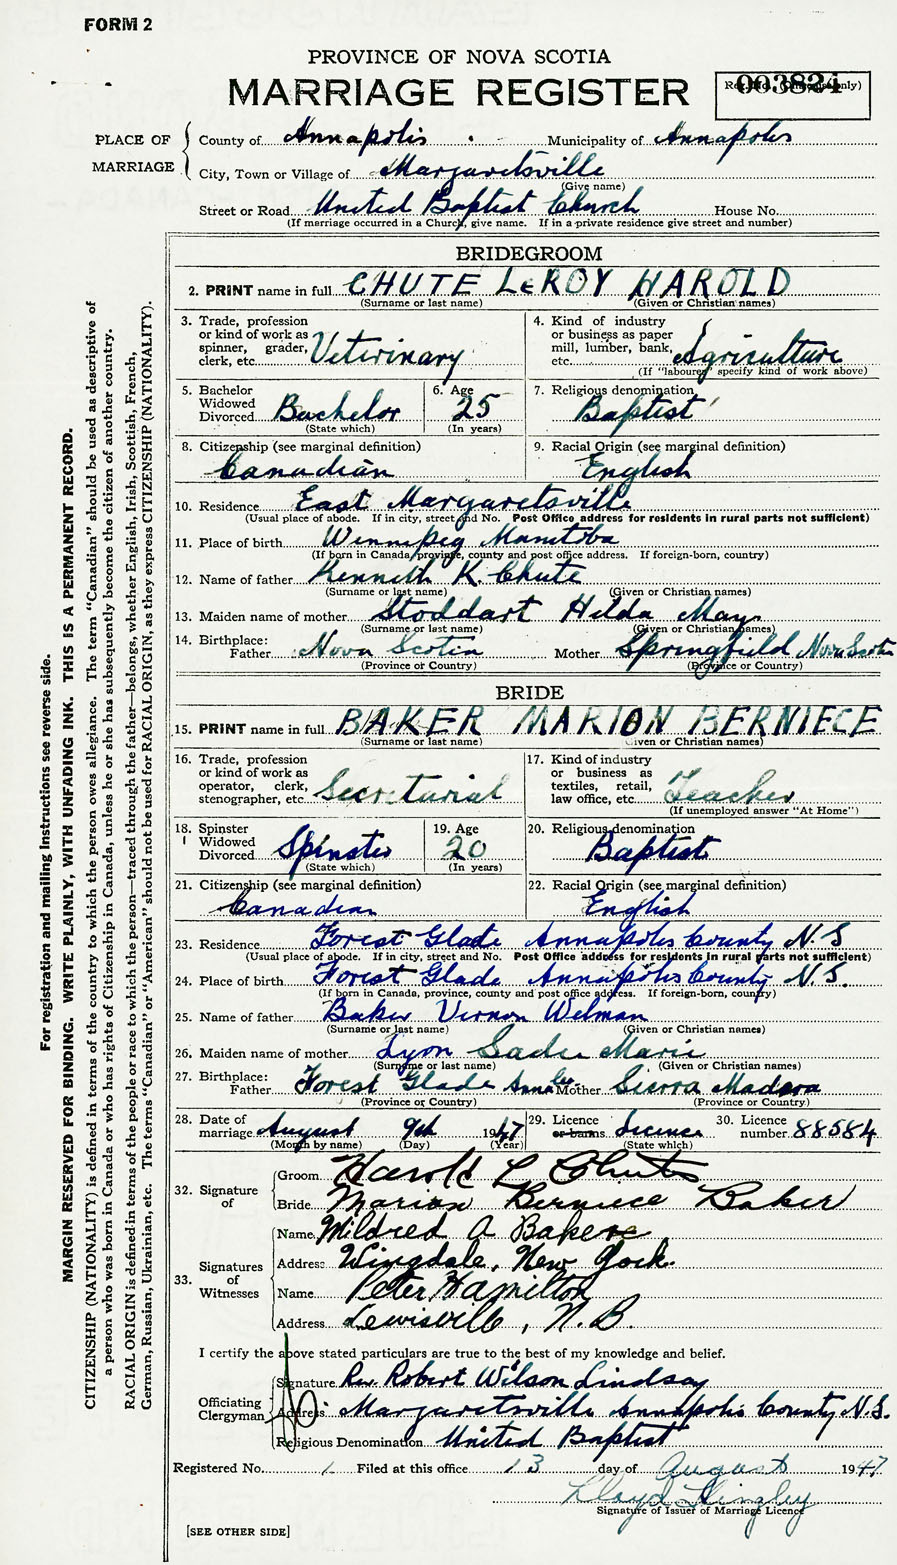 FORM 2
PROVINCE OF NOVA SCOTIA
MARRIAGE REGISTER
003824
PLACE OF MARRIAGE
County of Annapolis Municipality of Annapolis
City, Town or Village of Margaretsville
(Give name)
Street or Road United Baptist Church House No.
(If marriage occurred in a Church, give name. If in a private residence give street and number)
BRIDEGROOM
2. PRINT name in full CHUTE LeROY HAROLD
(Surname or last name) (Given or Christian names)
3. Trade, profession
or kind of work as
spinner, grader,
clerk, etc. Veterinary
4. Kind of industry
or business as paper
mill, lumber, bank,
etc. Agriculture
(If "labourer" specify kind of work above)
5. Bachelor
Widowed
Divorced Bachelor
(State which)
6. Age
25
(In years)
7. Religious denomination
Baptist
8. Citizenship (see marginal definition)
Canadian
9. Racial Origin (see marginal definition)
English
10. Residence East Margaretsville
(Usual place of abode. If in city, street and No. Post Office address for residents in rural parts not sufficient)
11. Place of birth Winnipeg Manitoba
(If born in Canada, province, county and post office address. If foreign-born, country)
12. Name of father Kenneth K. Chute
(Surname or last name) (Given or Christian names)
13. Maiden name of mother Stoddart Hilda May
(Surname or last name) (Given or Christian names)
14. Birthplace:
Father Nova Scotia Mother Springfield Nova Scotia
(Province or Country) (Province or Country)
BRIDE
15. PRINT name in full BAKER MARION BERNIECE
(Surname or last name) (Given or Christian names)
16. Trade, profession
or kind of work as
operator, clerk,
stenographer, etc. Secretarial
17. Kind of industry
or business as
textiles, retail,
law office, etc. Teacher
(If unemployed answer "At Home")
18. Spinster
Widowed
Divorced Spinster
(State which)
19. Age
20
(In years)
20. Religious denomination
Baptist
21. Citizenship (see marginal definition)
Canadian
22. Racial Origin (see marginal definition)
English
23. Residence Forest Glade Annapolis County N.S
(Usual place of abode. If in city, street and No. Post Office address for residents in rural parts not sufficient)
24. Place of birth Forest Glade Annapolis County N.S.
(If born in Canada, province, county and post office address. If foreign-born, country)
25. Name of father Baker Vernon Welman
(Surname or last name) (Given or Christian names)
26. Maiden name of mother Lyon Sadie Marie
(Surname or last name) (Given or Christian names)
27. Birthplace:
Father Forest Glade Mother Sierra Madera
(Province or Country) (Province or Country)
28. Date of
marriage August 9th 1947
(Month by name) (Day) (Year)
29. Licence
or banns Licence
(State which)
30. Licence
number 88584
32. Signature
of
Groom Harold L Chute
Bride Marion Berniece Baker
33. Signatures
of
Witnesses
Name Mildred A Baker
Address Wingdale, New York.
Name Peter Hamilton
Address Lewisville, N.B.
I certify the above stated particulars are true to the best of my knowledge and belief.
Officiating
Clergyman
Signature Rev. Robert Wilson Lindsay
Address Margaretsville Annapolis County N.S.
Religious Denomination United Baptist
Registered No. 1 Filed at this office 13 day of August 1947
Lloyd
Signature of Issuer of Marriage Licence
[SEE OTHER SIDE]
For registration and mailing instructions see reverse side.
MARGIN RESERVED FOR BINDING. WRITE PLAINLY, WITH UNFADING INK. THIS IS A PERMANENT RECORD.
CITIZENSHIP (NATIONALITY) is defined in terms of the country to which the person owes allegiance. The term "Canadian" should be used as descriptive of
a person who was born in Canada or who has rights of Citizenship in Canada, unless he or she has subsequently become the citizen of another country.
RACIAL ORIGIN is defined in terms of the people or race to which the person—traced through the father—belongs, whether English, Irish, Scottish, French,
German, Russian, Ukrainian, etc. The terms "Canadian" or "American" should not be used for RACIAL ORIGIN, as they express CITIZENSHIP (NATIONALITY).